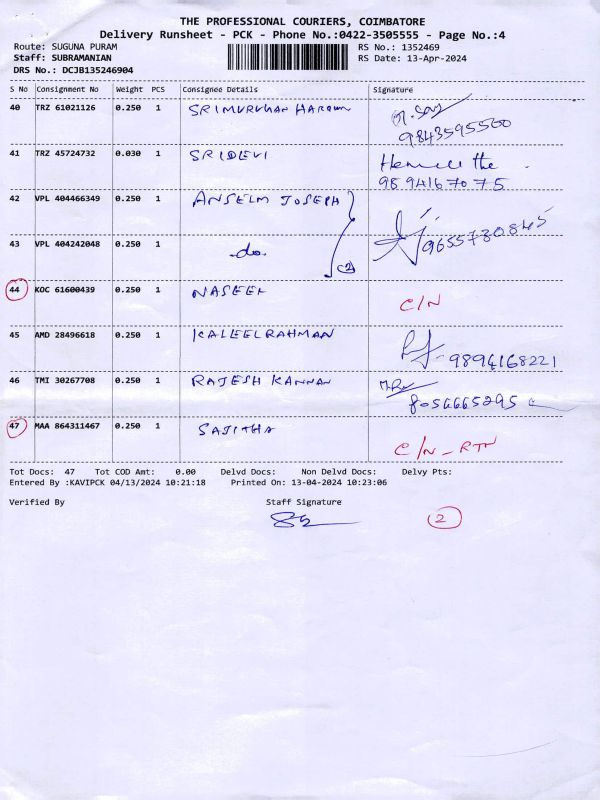 THE PROFESSIONAL COURIERS, COIMBATORE
Delivery Runsheet - PCK - Phone No.:0422-3505555 - Page No.:4
Route: SUGUNA PURAM RS No.: 1352469
Staff: SUBRAMANIAN RS Date: 13-Apr-2024
DRS No.: DCJB135246904
S No Consignment No Weight PCS Consignee Details Signature
40 TRZ 61021126 0.250 1 SRIMURUGHAN
9843595560
41 TRZ 45724732 0.030 1 SRIDEVI
9894167075
42 VPL 404466349 0.250 1 ANSELM JOSEPH
9655730845
43 VPL 404242048 0.250 1 -do-
(2)
44 KOC 61600439 0.250 1 NASEEK C/N
45 AMD 28496618 0.250 1 KALEELRAHMAN
9894168221
46 TMI 30267708 0.250 1 RAJESH KANNAN
8056665295
47 MAA 864311467 0.250 1 SAJITHA C/N - RTN
Tot Docs: 47 Tot COD Amt: 0.00 Delvd Docs: Non Delvd Docs: Delvy Pts:
Entered By :KAVIPCK 04/13/2024 10:21:18 Printed On: 13-04-2024 10:23:06
Verified By Staff Signature
2